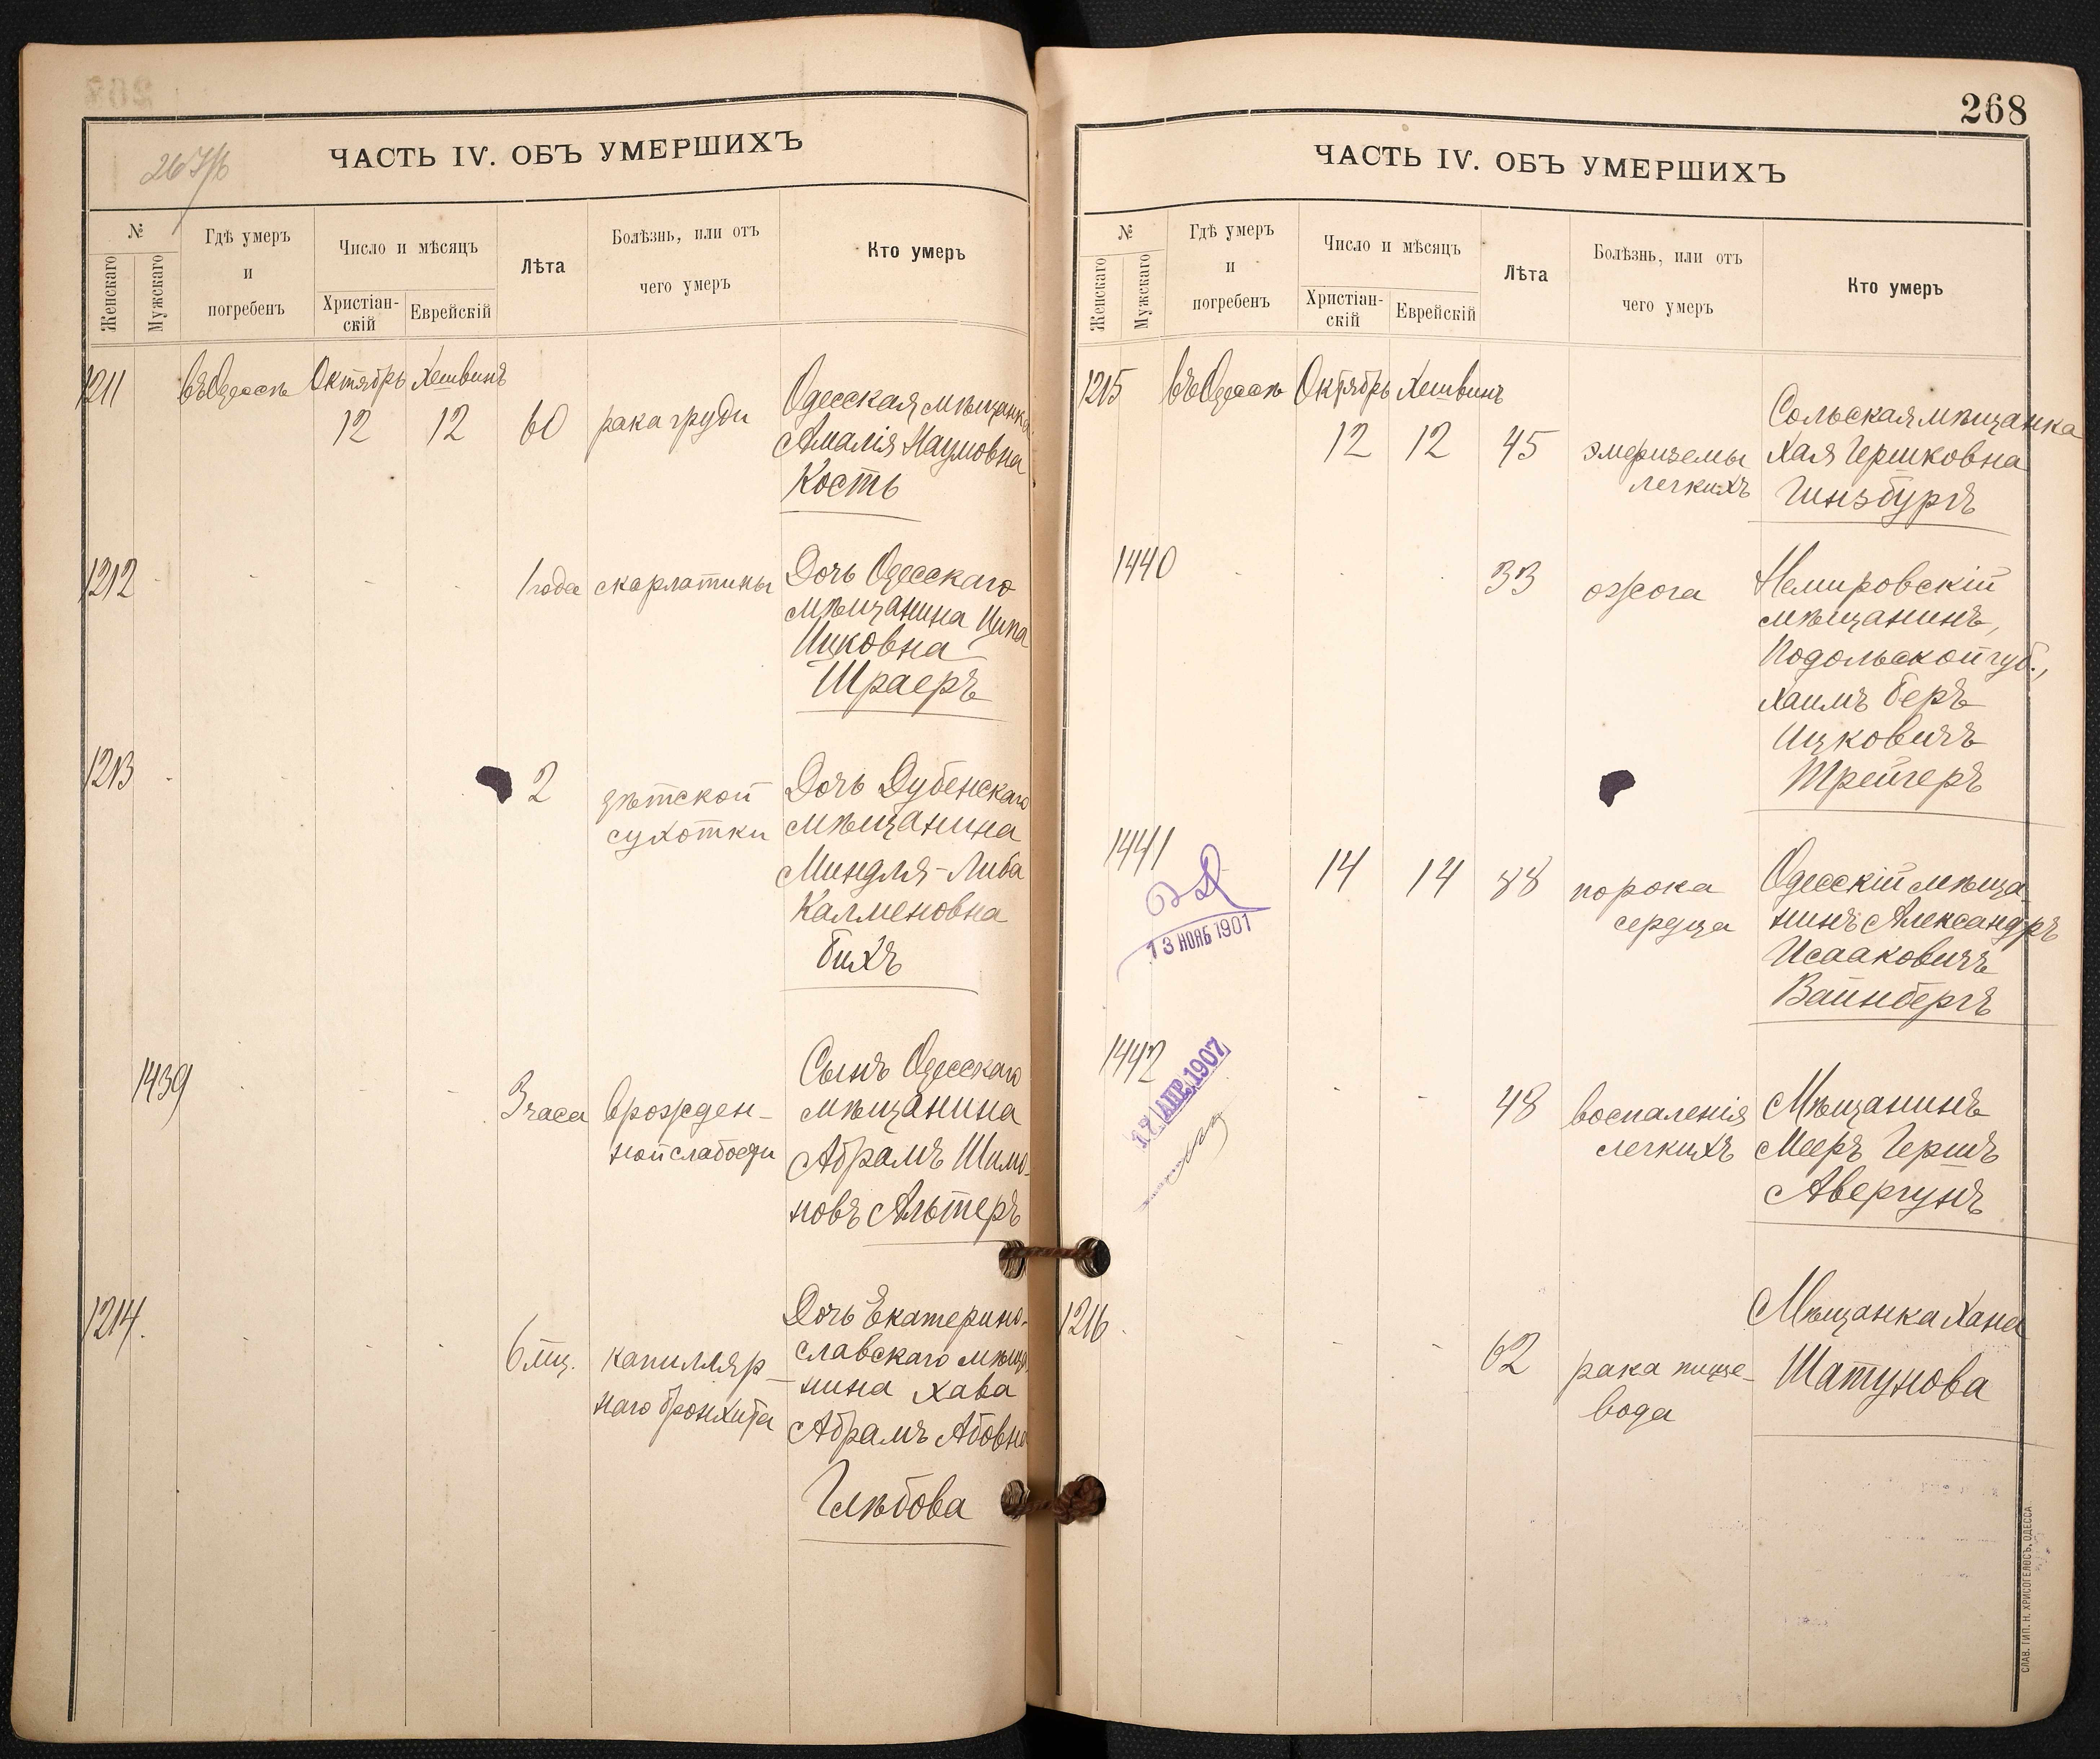 267/б
ЧАСТЬ IV. ОБЪ УМЕРШИХЪ
№
Женскаго
Мужскаго
Гдѣ умеръ
и
погребенъ
Число и мѣсяцъ
Христіан-
скій
Еврейскій
Лѣта
Болѣзнь, или отъ
чего умеръ
Кто умеръ
1211 въ Одессѣ Октябрь Хешвинъ
12 12 60 рака груди
Одесская мѣщанка
Амалія Наумовна
Кость
1212 1 года скарлатины
Дочь Одесскаго
мѣщанина Ципа
Ицковна
Шраеръ
1213 2 дѣтской
сухотки
Дочь Дубенскаго
мѣщанина
Миндля-Либа
Калменовна
Бихъ
1439 3 часа врожден-
ной слабости
Сынъ Одесскаго
мѣщанина
Абрамъ Шимо-
новъ Альтеръ
1214. 6 мц. капилляр-
наго бронхита
Дочь Екатерино-
славскаго мѣща
нина Хава
Абрамъ Абовна
Глѣбова
268
ЧАСТЬ IV. ОБЪ УМЕРШИХЪ
№
Женскаго
Мужскаго
Гдѣ умеръ
и
погребенъ
Число и мѣсяцъ
Христіан-
скій
Еврейскій
Лѣта
Болѣзнь, или отъ
чего умеръ
Кто умеръ
1215 въ Одессѣ Октябрь Хешвинъ
12 12 45 эмфиземы
легкихъ
Сольская мѣщанка
Хая Гершковна
Гинзбургъ
1440 33 ожога
Немировскій
мѣщанинъ,
Подольской губ.,
Хаимъ Беръ
Ицковичъ
Трейгеръ
1441 14 14 88 порока
сердца
Одесскій мѣща
нинъ Александръ
Исааковичъ
Вайнбергъ
13 НОЯБ 1901
1442 48 воспаленія
легкихъ
Мѣщанинъ
Мееръ Гершъ
Авергунъ
17 АПР. 1907
1216 62 рака пище-
вода
Мѣщанка Хана
Шатунова
СЛАВ. ТИП. Н. ХРИСОГЕЛОСЪ, ОДЕССА